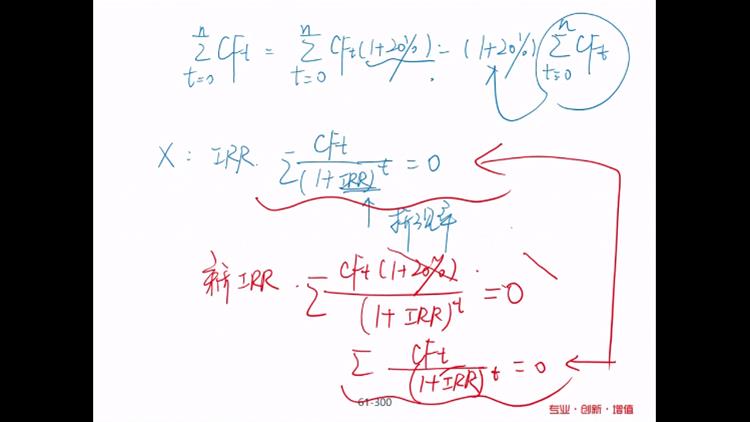 n∑t=0 CFt = n∑t=0 CFt(1+20%) = (1+20%) n∑t=0 CFt
X: IRR. ∑ CFt/(1+IRR)^t = 0
折现率
新IRR. ∑ CFt(1+20%)/(1+IRR)^t = 0
∑ CFt/(1+IRR)^t = 0
61-300
专业·创新·增值